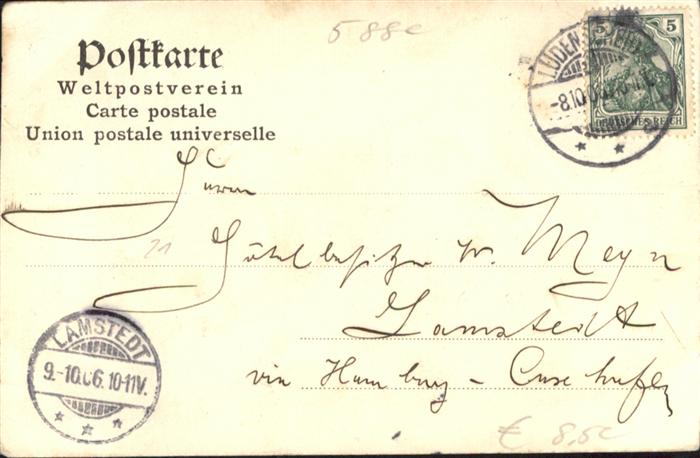 588c
Postkarte
Weltpostverein
Carte postale
Union postale universelle
5
5
DEUTSCHES REICH
LÜDENSCHEID
-8.10.06
Herrn
21
Hôtelbesitzer W. Meyn
Lamstedt
via Hamburg -
LAMSTEDT
9.-10.06.10-11V.
€ 8,5c